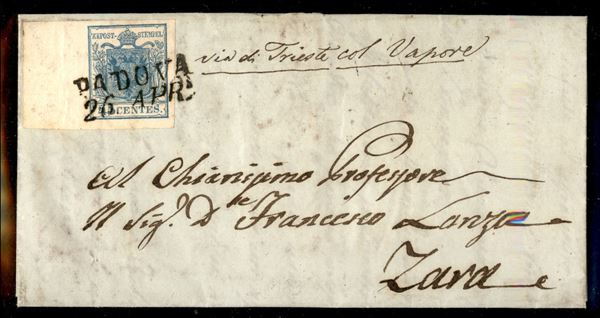 KKPOST-STEMPEL
PADOVA
26 APR.
45 CENTES.
via di Trieste col Vapore
Al Chiarissimo Professore
Il Sig.r D.re Francesco Lanza
Zara